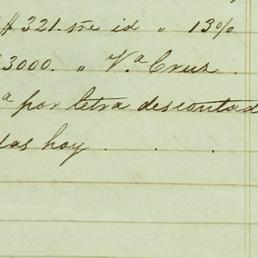 $321. sre id " 13%
3000. " V.ª Cruz.
ª por letra descontad
das hoy . . .